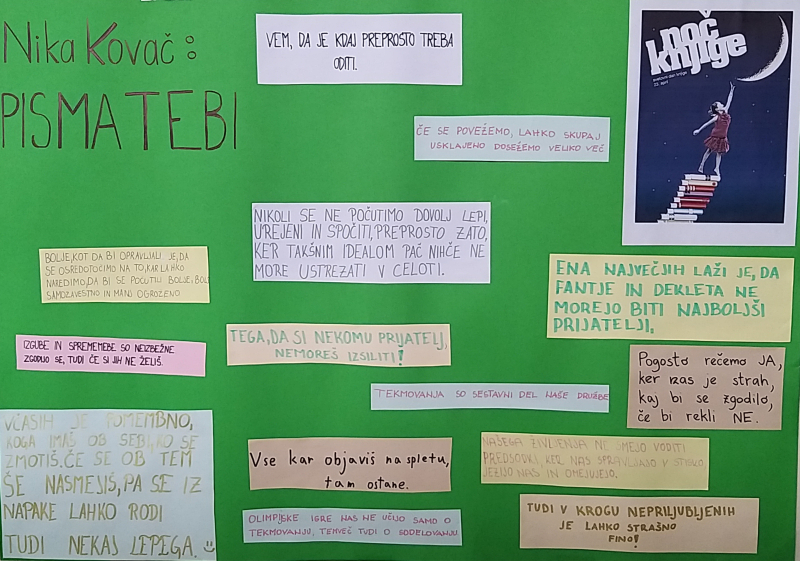 Nika Kovač:
PISMA TEBI
VEM, DA JE KDAJ PREPROSTO TREBA
ODITI.
noč
knjige
svetovni dan knjige
23. april
ČE SE POVEŽEMO, LAHKO SKUPAJ
USKLAJENO DOSEŽEMO VELIKO VEČ
NIKOLI SE NE POČUTIMO DOVOLJ LEPI,
UREJENI IN SPOČITI, PREPROSTO ZATO,
KER TAKŠNIM IDEALOM PAČ NIHČE NE
MORE USTREZATI V CELOTI.
BOLJE, KOT DA BI OPRAVLJALI JE, DA
SE OSREDOTOČIMO NA TO, KAR LAHKO
NAREDIMO, DA BI SE POČUTILI BOLJE, BOLJ
SAMOZAVESTNO IN MANJ OGROŽENO
ENA NAJVEČJIH LAŽI JE, DA
FANTJE IN DEKLETA NE
MOREJO BITI NAJBOLJŠI
PRIJATELJI.
TEGA, DA SI NEKOMU PRIJATELJ,
NEMOREŠ IZSILITI!
IZGUBE IN SPREMEMEBE SO NEIZBEŽNE
ZGODIJO SE, TUDI ČE SI JIH NE ŽELIŠ.
Pogosto rečemo JA,
ker nas je strah,
kaj bi se zgodilo,
če bi rekli NE.
TEKMOVANJA SO SESTAVNI DEL NAŠE DRUŽBE
VČASIH JE POMEMBNO,
KOGA IMAŠ OB SEBI, KO SE
ZMOTIŠ. ČE SE OB TEM
ŠE NASMEJIŠ, PA SE IZ
NAPAKE LAHKO RODI
TUDI NEKAJ LEPEGA.
Vse kar objaviš na spletu,
tam ostane.
NAŠEGA ŽIVLJENJA NE SMEJO VODITI
PREDSODKI, KER NAS SPRAVLJAJO V STISKO
JEZIJO NAS IN OMEJUJEJO.
OLIMPIJSKE IGRE NAS NE UČIJO SAMO O
TEKMOVANJU, TEMVEČ TUDI O SODELOVANJU
TUDI V KROGU NEPRILJUBLJENIH
JE LAHKO STRAŠNO
FINO!